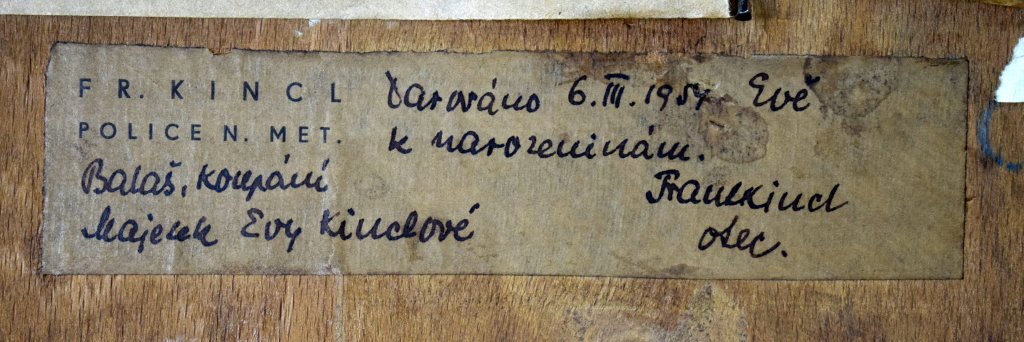 FR. KINCL
POLICE N. MET.
Darováno 6.III.1951 Evě
k narozeninám.
Balaš, koupání
Majetek Evy Kinclové
Frant Kincl
otec.